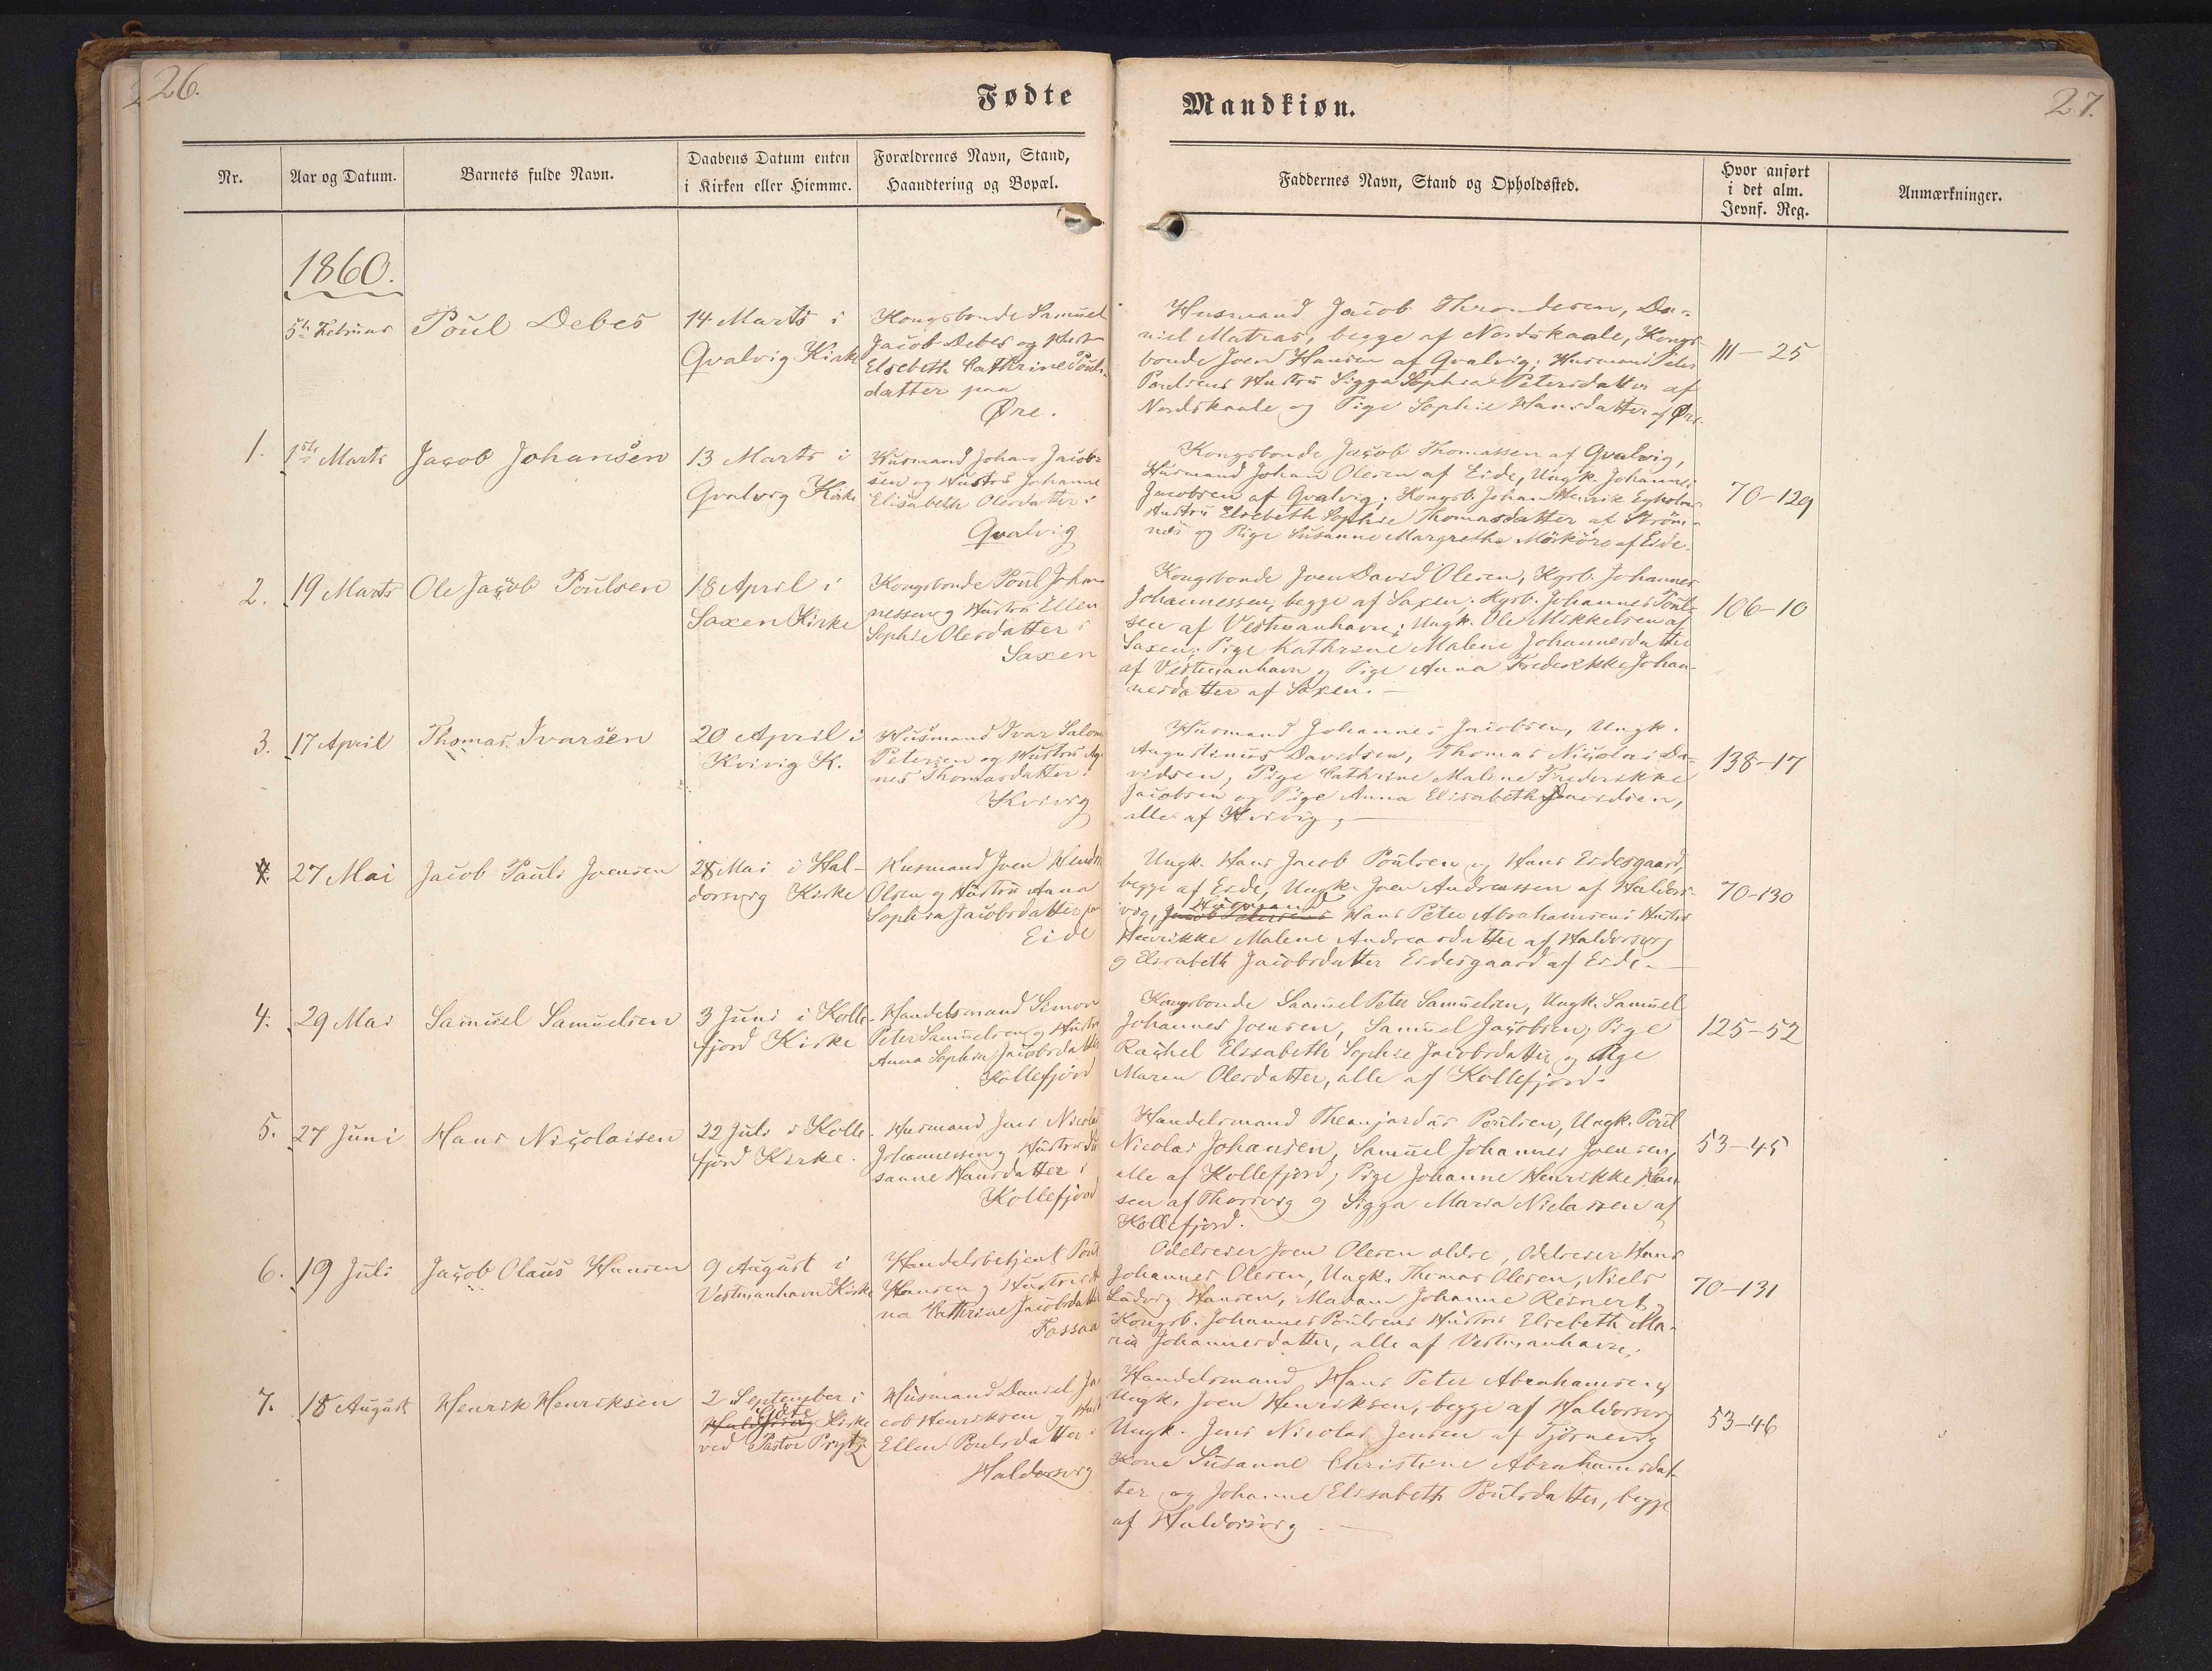 26.
Fødte
Nr.
Aar og Datum.
Barnets fulde Navn.
Daabens Datum enten
i Kirken eller Hiemme.
Forældrenes Navn, Stand,
Haandtering og Bopæl.
1860.
5te Februar
Poul Debes
14 Marts i
Qvalvig Kirke
Kongsbonde Samuel
Jacob Debes og Hustru
Elsebeth Cathrine Pouls-
datter paa
Øre.
1.
1ste Marts
Jacob Johansen
13 Marts i
Qvalvig Kirke
Husmand Johan Jacob-
sen og Hustru Johanne
Elisabeth Olesdatter i
Qvalvig
2.
19 Marts
Ole Jacob Poulsen
18 April i
Saxen Kirke
Kongsbonde Poul Johan-
nessen og Hustru Ellen
Sophie Olesdatter i
Saxen
3.
17 April
Thomas Ivarsen
20 April i
Kvivig K.
Husmand Ivar Salom
Petersen og Hustru Ag-
nes Thomasdatter i
Kvivig
4.
27 Mai
Jacob Pauli Joensen
28 Mai i Hal-
dorsvig Kirke
Husmand Joen Hendr
Olsen og Hustru Anna
Sophia Jacobsdatter paa
Eide
4.
29 Mai
Samuel Samuelsen
3 Juni i Kolle-
fjord Kirke
Handelsmand Simon
Peter Samuelsen og Hustru
Anna Sophia Jacobsdatter
Kollefjord
5.
27 Juni
Hans Nicolaisen
22 Juli i Kolle-
fjord Kirke.
Husmand Jens Nicolai
Johannessen og Hustru Su-
sanne Hansdatter i
Kollefjord
6.
19 Juli
Jacob Olaus Hansen
9 August i
Vestmanhavn Kirke
Handelsbetjent Poul
Hansen og Hustru
na Cathrine Jacobsdatter
Fossaa
7.
18 August
Henrik Henriksen
2 September i
Gjote
Haldorsvig Kirke
ved Pastor Prytz
Husmand Daniel Ja-
cob Henriksen og Hust
Ellen Poulsdatter i
Haldorsvig
Mandkiøn.
27.
Faddernes Navn, Stand og Opholdssted.
Hvor anført
i det alm.
Jevnf. Reg.
Anmærkninger.
Husmand Jacob Throndesen, Da-
niel Matras, begge af Nordskaale, Kongs-
bonde Joen Hansen af Qvalvig; Husmand Peter
Poulsens Hustru Sigga Sophia Petersdatter af
Nordskaale og Pige Sophie Hansdatter af Øre.
111-25
Kongsbonde Jacob Thomassen af Qvalvig,
Husmand Johan Olesen af Eide, Ungk. Johannes
Jacobsen af Qvalvig; Kongsb. Johan Henrik Egholms
Hustru Elsebeth Sophie Thomasdatter af Strøm-
næs og Pige Susanne Margrethe Mörköre af Eide.
70-129
Kongsbonde Joen David Olesen, Kgsb. Johannes
Johannessen, begge af Saxen; Kgsb. Johannes Poul-
sen af Vestmanhavn; Ungk. Ole Mikkelsen af
Saxen; Pige Kathrine Malene Johannesdatter
af Vestmanhavn og Pige Anna Frederikke Johan-
nesdatter af Saxen.
106-10
Husmand Johannes Jacobsen, Ungk.
Augustinus Davidsen, Thomas Nicolai Da-
vidsen, Pige Cathrine Malene Frederikke
Jacobsen og Pige Anna Elisabeth Davidsen,
alle af Kvivig,
138-17
Ungk. Hans Jacob Poulsen og Hans Eidesgaard,
begge af Eide, Ungk. Joen Andreassen af Haldors-
Husmand
vig, Jacob Petersens Hans Peter Abrahamsens Hustru
Henrikke Malene Andreasdatter af Haldorsvig
og Elisabeth Jacobsdatter Eidesgaard af Eide.
70-130
Kongsbonde Samuel Peter Samuelsen, Ungk. Samuel
Johannes Joensen, Samuel Jacobsen, Pige
Rachel Elisabeth Sophie Jacobsdatter og Pige
Maren Olesdatter, alle af Kollefjord.
125-52
Handelsmand Poulsen, Ungk. Poul
Nicolai Johansen, Samuel Johannes Joensen,
alle af Kollefjord; Pige Johanne Henrikke Han-
sen af Thorsvig og Sigga Maria Niclassen af
Kollefjord.
53-45
Odelseier Joen Olesen ældre, Odelseier Hans
Johannes Olesen, Ungk. Thomas Olesen, Niels
Ludvig Hansen, Madam Johanne Reinert og
Kongsb. Johannes Poulsens Hustru Elsebeth Ma-
ria Johannesdatter, alle af Vestmanhavn.
70-131
Handelsmand Hans Peter Abrahamsen,
Ungk. Joen Henriksen, begge af Haldorsvig
Ungk. Jens Nicolai Jensen af Tjörnevig
Kone Susanne Christine Abrahamsdat-
ter og Johanne Elisabeth Poulsdatter, begge
af Haldorsvig.
53-46